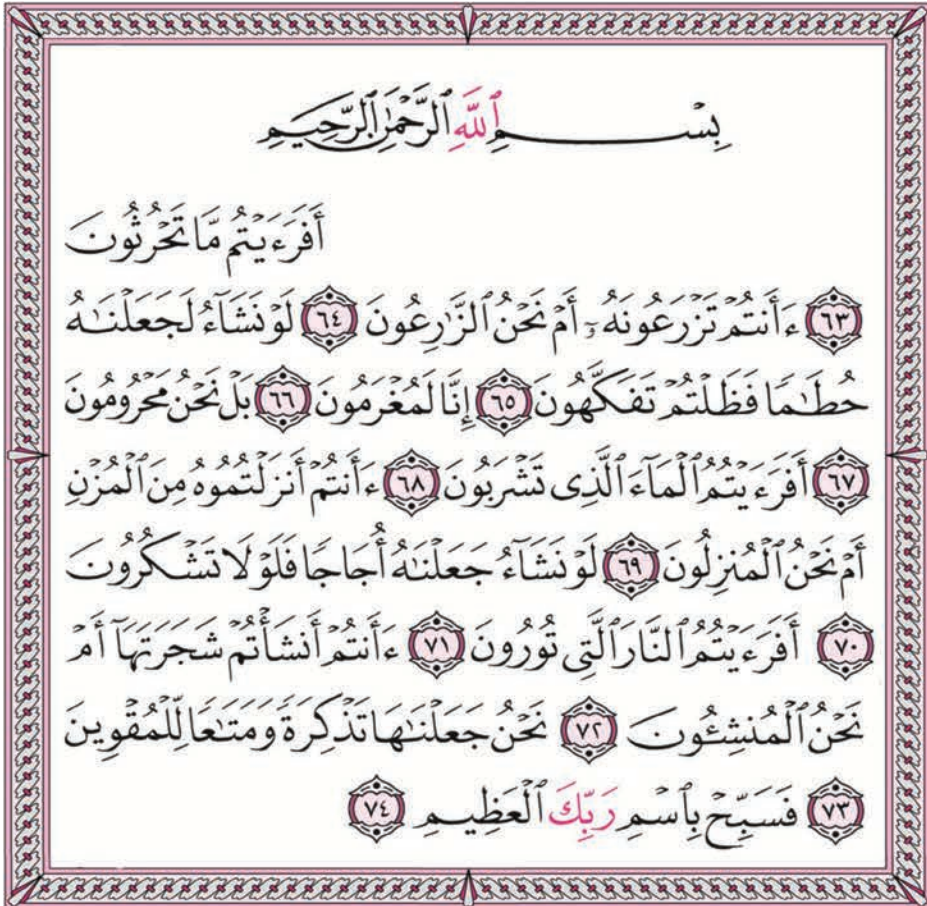 بِسْمِ ٱللَّهِ ٱلرَّحْمَٰنِ ٱلرَّحِيمِ
أَفَرَءَيْتُم مَّا تَحْرُثُونَ
٦٣ ءَأَنتُمْ تَزْرَعُونَهُۥٓ أَمْ نَحْنُ ٱلزَّٰرِعُونَ ٦٤ لَوْ نَشَآءُ لَجَعَلْنَٰهُ
حُطَٰمًا فَظَلْتُمْ تَفَكَّهُونَ ٦٥ إِنَّا لَمُغْرَمُونَ ٦٦ بَلْ نَحْنُ مَحْرُومُونَ
٦٧ أَفَرَءَيْتُمُ ٱلْمَآءَ ٱلَّذِى تَشْرَبُونَ ٦٨ ءَأَنتُمْ أَنزَلْتُمُوهُ مِنَ ٱلْمُزْنِ
أَمْ نَحْنُ ٱلْمُنزِلُونَ ٦٩ لَوْ نَشَآءُ جَعَلْنَٰهُ أُجَاجًا فَلَوْلَا تَشْكُرُونَ
٧٠ أَفَرَءَيْتُمُ ٱلنَّارَ ٱلَّتِى تُورُونَ ٧١ ءَأَنتُمْ أَنشَأْتُمْ شَجَرَتَهَآ أَمْ
نَحْنُ ٱلْمُنشِـُٔونَ ٧٢ نَحْنُ جَعَلْنَٰهَا تَذْكِرَةً وَمَتَٰعًا لِّلْمُقْوِينَ
٧٣ فَسَبِّحْ بِٱسْمِ رَبِّكَ ٱلْعَظِيمِ ٧٤